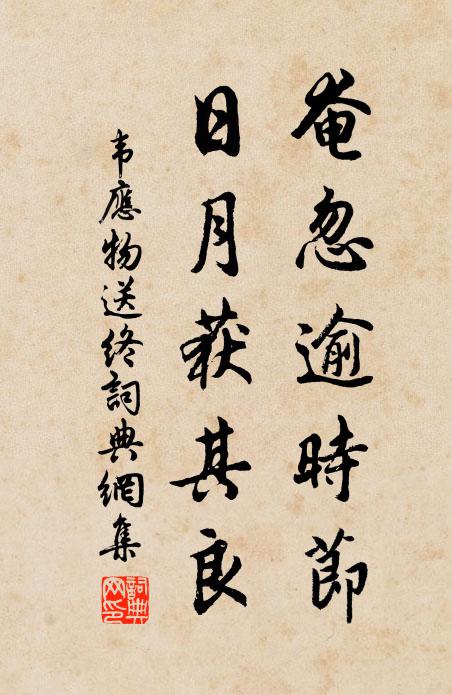 奄忽逾時節
日月获其良
韦應物送终詞典網集
詞典网印